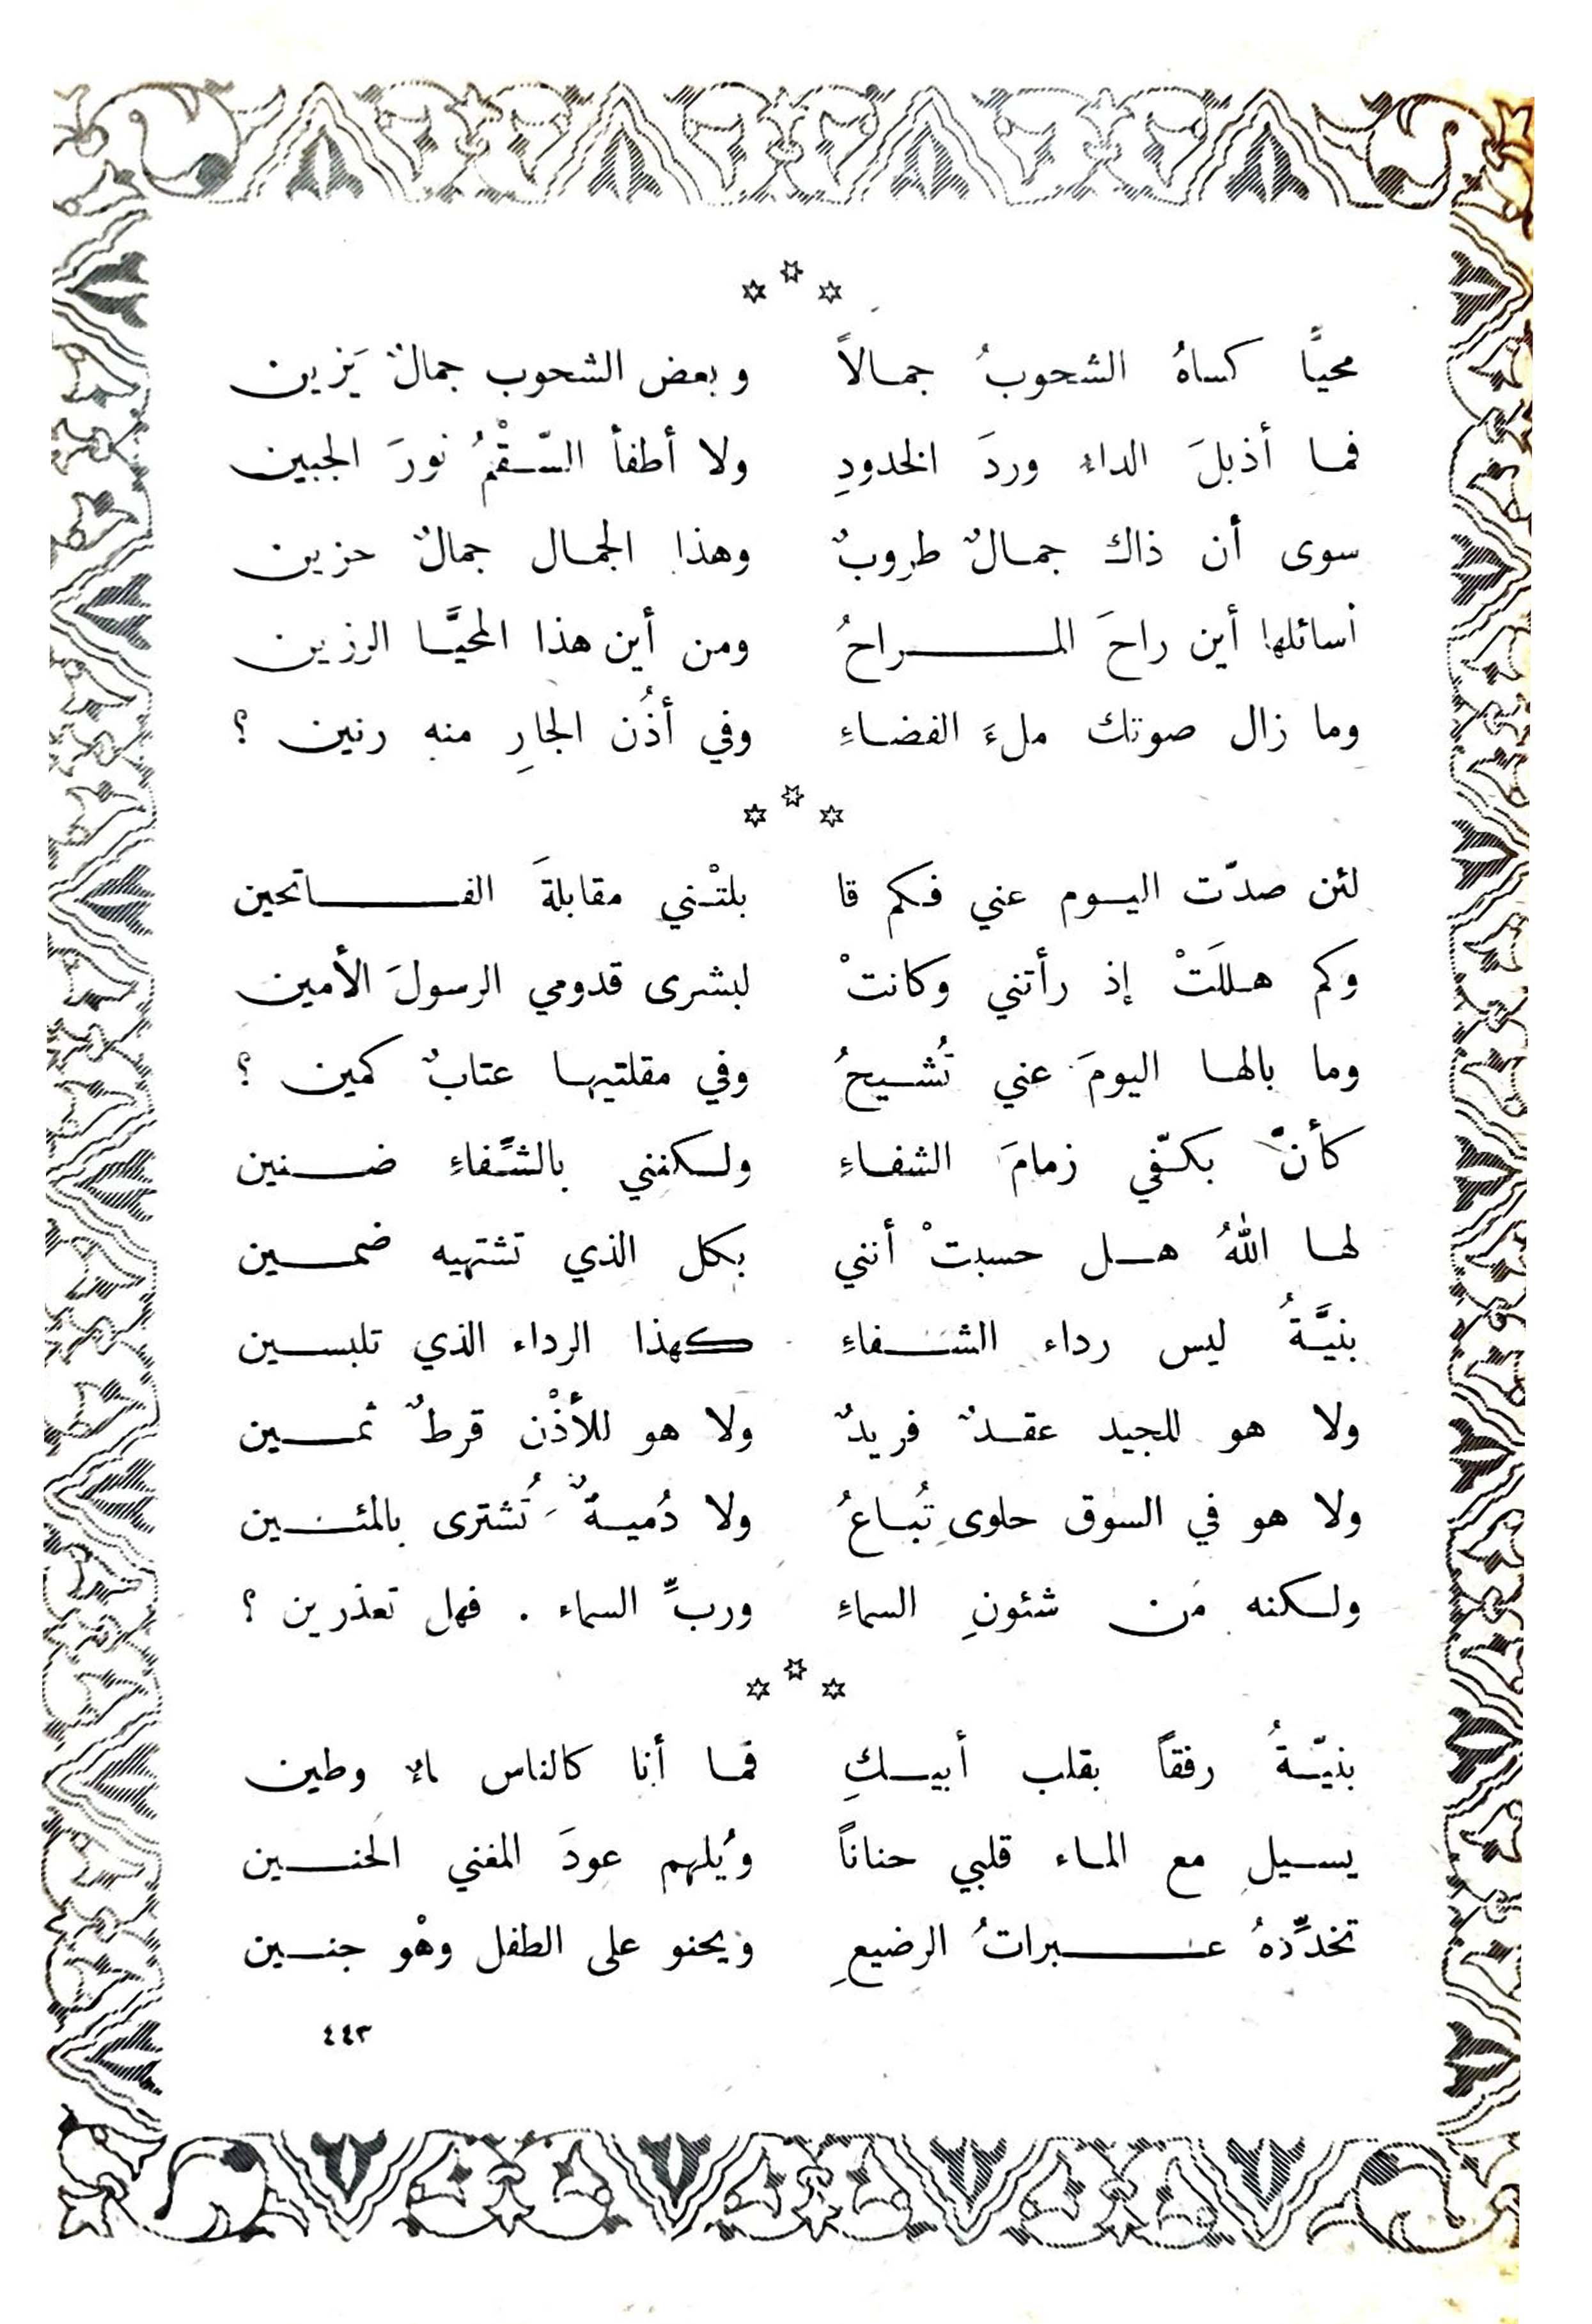 محيًّا كساهُ الشحوبُ جمالاً وبعض الشحوب جمالٌ يَزين
فما أذبلَ الداء وردَ الخدودِ ولا أطفأ السّقْمُ نورَ الجبين
سوى أن ذاك جمالٌ طروبٌ وهذا الجمال جمالٌ حزين
أسائلها أين راحَ المراحُ ومن أين هذا المحيَّا الرزين
وما زال صوتك ملءَ الفضاءِ وفي أذُن الجارِ منه رنين ؟
لئن صدّت اليوم عني فكم قا بلتْني مقابلةَ الفاتحين
وكم هللَتْ إذ رأتني وكانتْ لبشرى قدومي الرسولَ الأمين
وما بالها اليومَ عني تُشيحُ وفي مقلتيها عتابٌ كمين ؟
كأنّ بكفّي زمامَ الشفاءِ ولكنني بالشّفاءِ ضنين
لها اللهُ هل حسبتْ أنني بكل الذي تشتهيه ضمين
بنيَّةُ ليس رداء الشفاءِ كهذا الرداء الذي تلبسين
ولا هو للجيد عقدٌ فريدٌ ولا هو للأذْن قرطٌ ثمين
ولا هو في السوق حلوى تُباعُ ولا دُميةٌ تُشترى بالمئين
ولكنه من شئونِ السماءِ وربِّ السماء . فهل تعذرين ؟
بنيّةُ رفقاً بقلب أبيكِ فما أنا كالناس ماء وطين
يسيل مع الماء قلبي حناناً ويُلهم عودَ المغني الحنين
تخدِّدهُ عبراتُ الرضيعِ ويحنو على الطفل وهْو جنين
٤٤٣